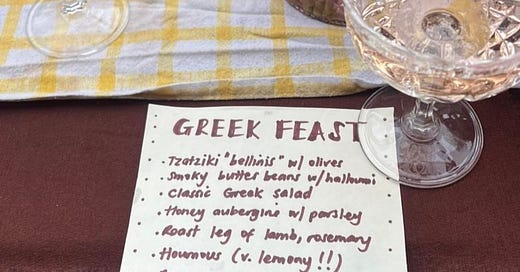 GREEK FEAST
• Tzatziki "bellinis" w/ olives
• Smoky butter beans w/ halloumi
• Classic Greek salad
• Honey aubergine w/ parsley
• Roast leg of lamb, rosemary
• Houmous (v. lemony !!)